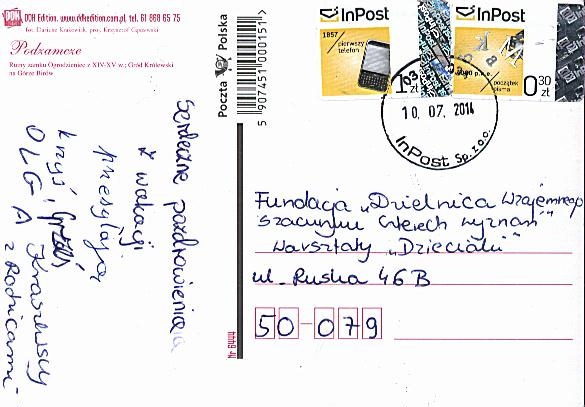 DDK Edition. www.ddkedition.com.pl, tel. 61 868 65 75
fot. Dariusz Krakowiak, proj. Krzysztof Gąsowski
Podzamcze
Ruiny zamku Ogrodzieniec z XIV-XV w.; Gród Królewski
na Górze Birów
Poczta Polska
5 907451 000151
Nr 64444
InPost
1857
pierwszy
telefon
1,03
zł
InPost
p.n.e.
początek
pisma
0,30
zł
10. 07. 2014
InPost Sp. z o.o.
Serdeczne pozdrowienia
z wakacji
przesyłają
Krzyś, Grześ
OLGA Kraszewscy
z Rodzicami
Fundacja „Dzielnica Wzajemnego
Szacunku Czterech Wyznań"
Warsztaty „Dzieciaki"
ul. Ruska 46B
50-079